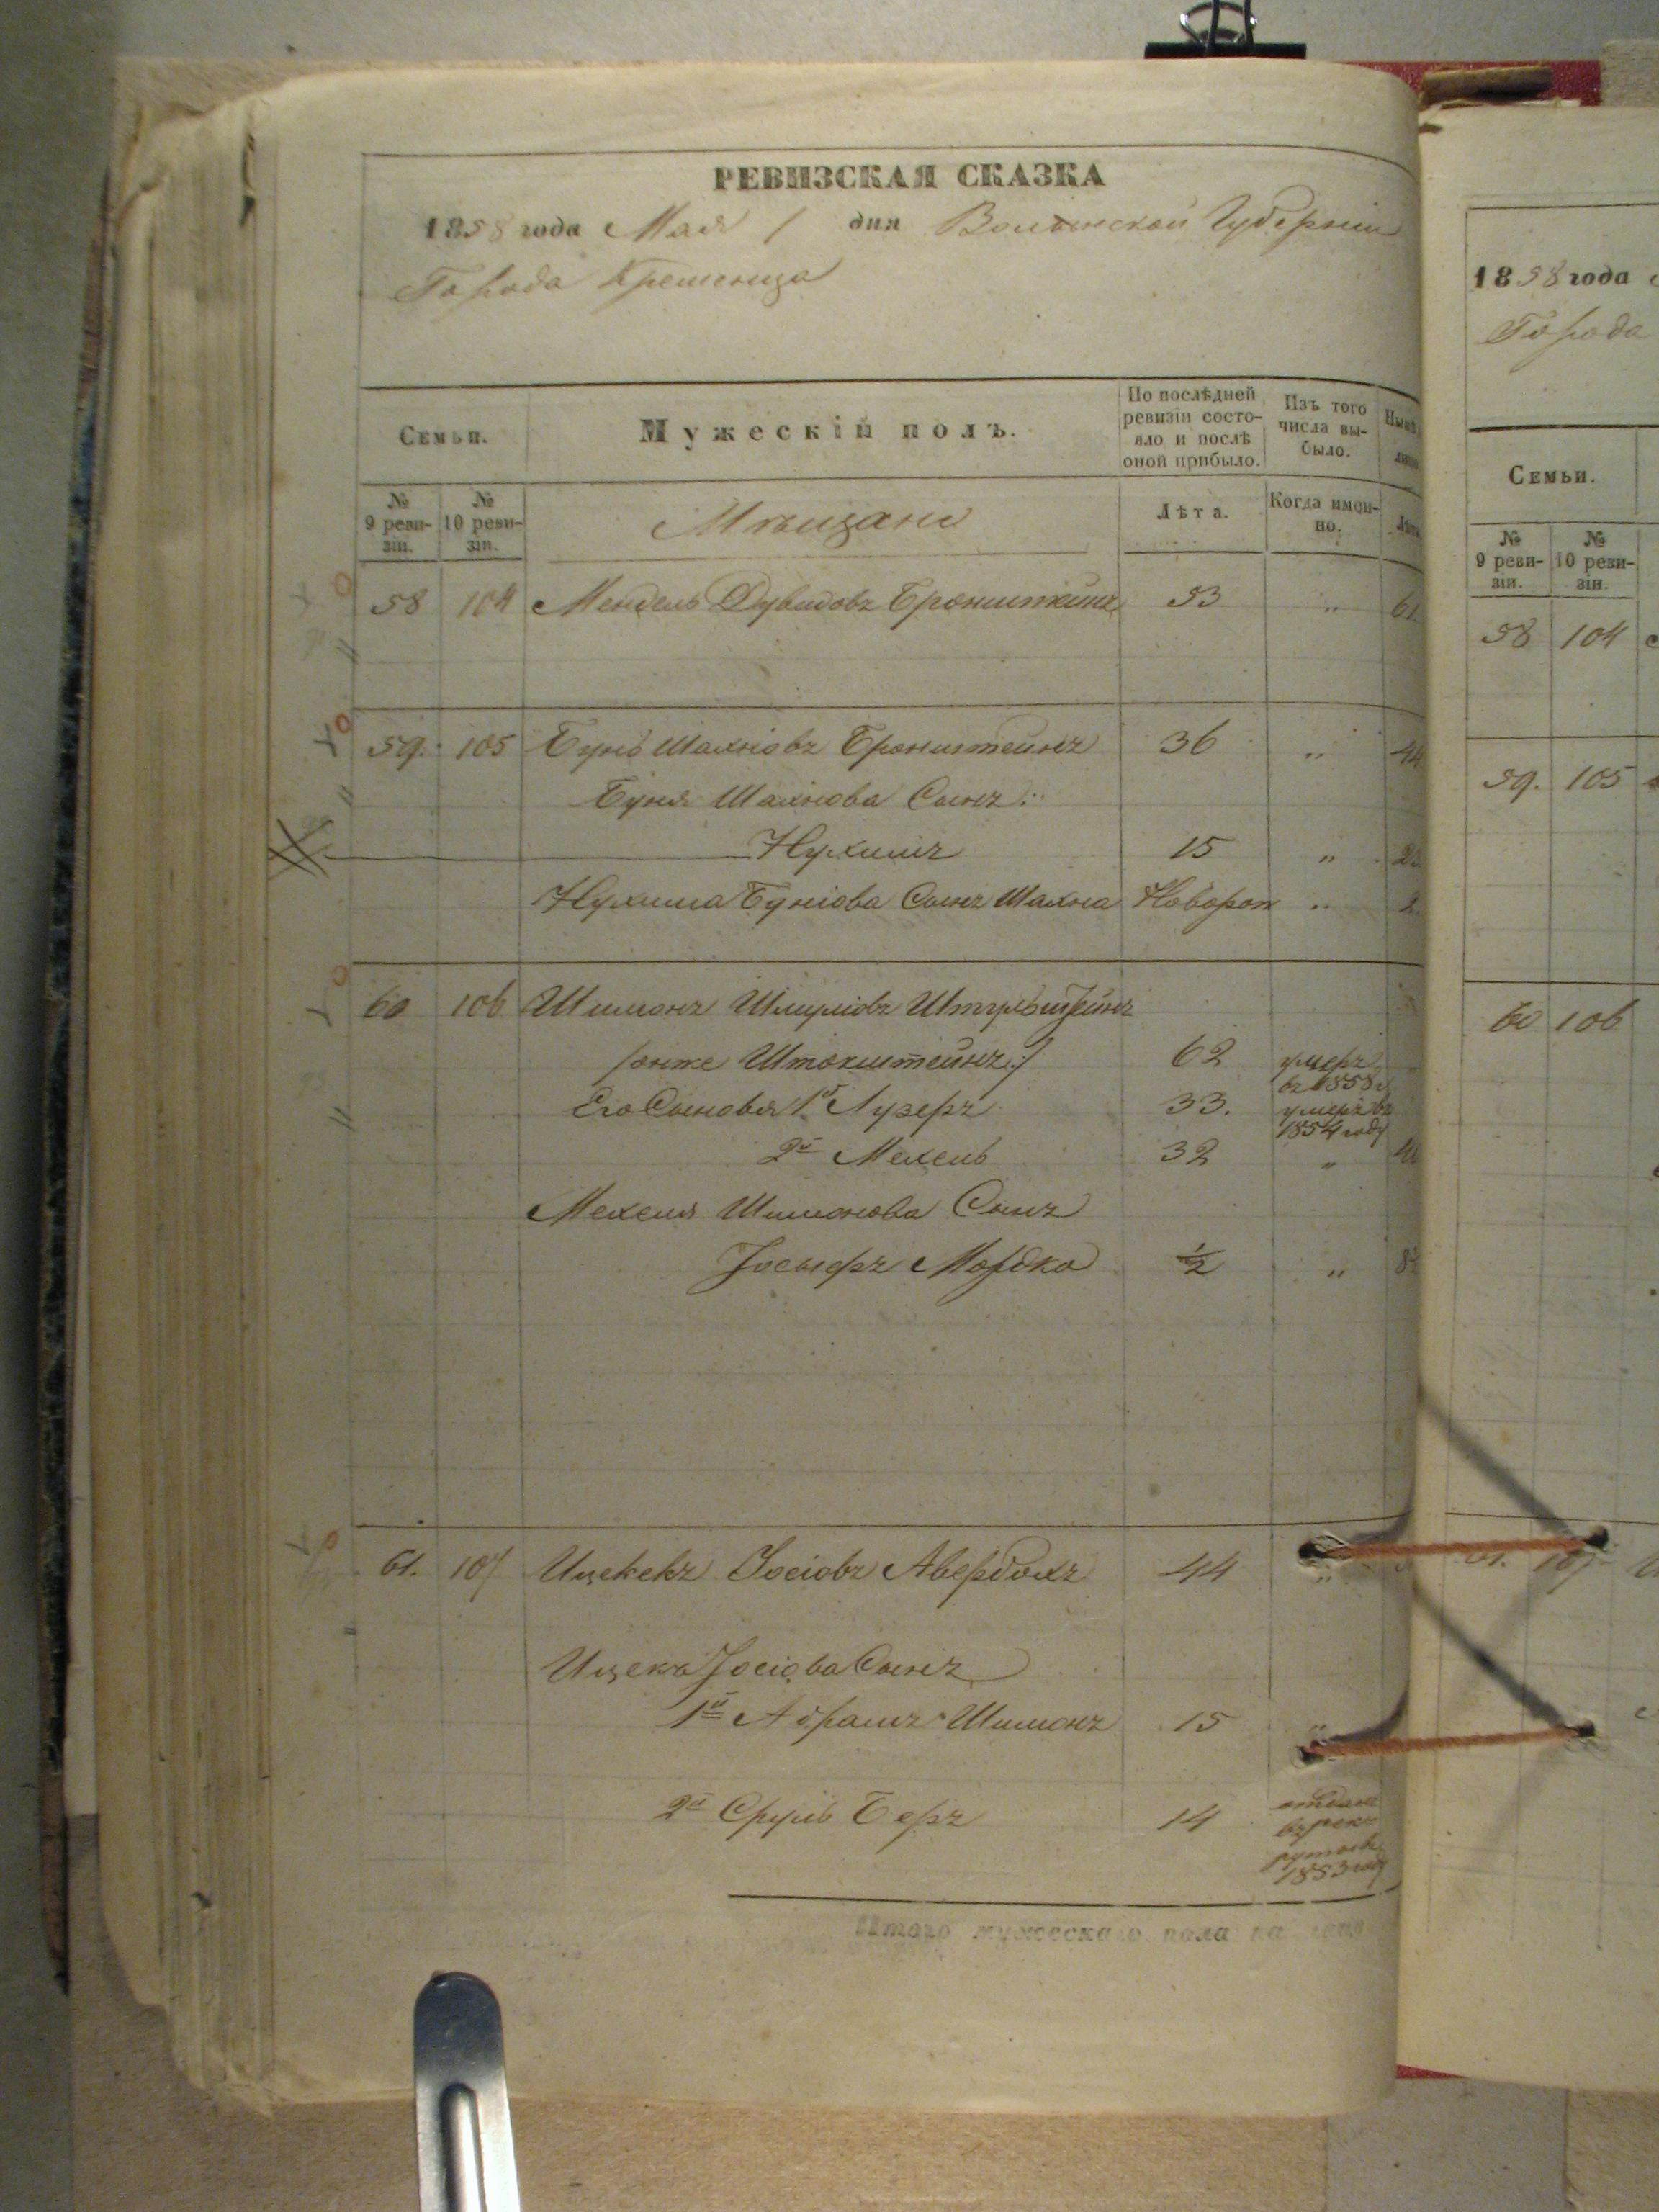 РЕВИЗСКАЯ СКАЗКА
1858 года Мая 1 дня Волынской Губернии
Города Кременца
Семьи.
Мужескій полъ.
По послѣдней ревизіи состояло и послѣ оной прибыло.
Изъ того числа выбыло.
№ 9 ревизіи.
№ 10 ревизіи.
Мѣщане
Лѣта.
Когда именно.
58 104 Мендель Дувидовъ 53 „ 61
59. 105 Бунь Шахновъ Бронштейнъ 36 „ 44
Буня Шахнова Сынъ:
Нухимъ 15 „ 23
Нухима Буніова Сынъ Шахна Новорож „
60 106 Шимонъ Шмуліовъ
/онже Штокштейнъ:/ 62 умеръ въ 1858 г
Его Сыновья 1й Лузеръ 33. умеръ въ 1854 году
2й Мехель 32 „
Мехеля Шимонова Сынъ
Іосыфъ Мордко ½ „
61. 107 Ицекъ Іосіовъ Авербохъ 44 „
Ицека Іосіова Сынъ
1й Абрамъ Шимонъ 15 „
2й Сруль Беръ 14 отданъ въ рекруты въ 1853 году
Итого мужеска о пола на
1858 года
Города
Семьи.
№ 9 ревизіи.
№ 10 ревизіи.
58 104
59. 105
60 106
61. 107